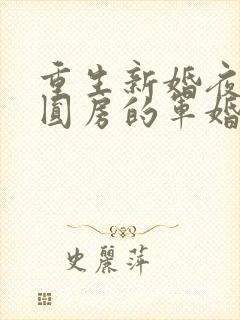 重生新婚夜
圆房的军婚
史丽萍